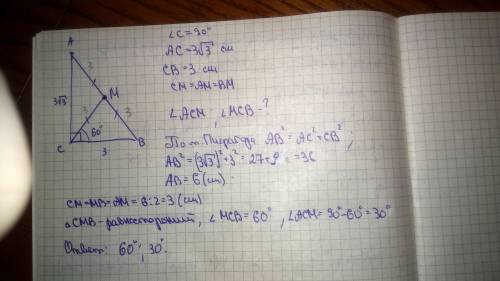 ∠C = 90°
AC = 3√3 см
CB = 3 см
CM = AM = BM
∠ACM ; ∠MCB - ?
По т. Пифагора AB² = AC² + CB² ;
AB² = (3√3)² + 3² = 27 + 9 = 36
AB = 6 (см)
A
3
M
3√3
3
3
60°
C
3
B
CM = MB = AM = 6 : 2 = 3 (см)
△CMB - равносторонний, ∠MCB = 60°, ∠ACM = 90° - 60° = 30°
Ответ: 60° ; 30°.